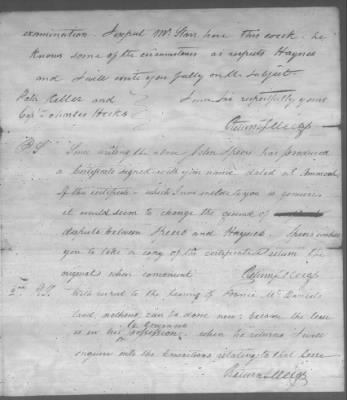 examination. I expect Mr. Starr here this week. he
knows some of the circumstances as respects Haynes
and I will write you fully on the subject.
Peter Keller and I am Sir respectfully yours
Charles Hicks Return J Meigs
P.S. Since writing the above John Speers has produced
a Certificate signed with your name dated at
If this certificate - which I now inclose to you is genuine
it would seem to change the ground of
dispute between Speers and Haynes. Speers wishes
you to take a copy of the certificate & return the
original when convenient Return J Meigs
2nd P.S. With respect to the leasing of Fannie McDaniels
land, nothing can be done now; because the lease
is in his possession. when he returns I will
enquire into the transactions relating to that lease
Return J Meigs